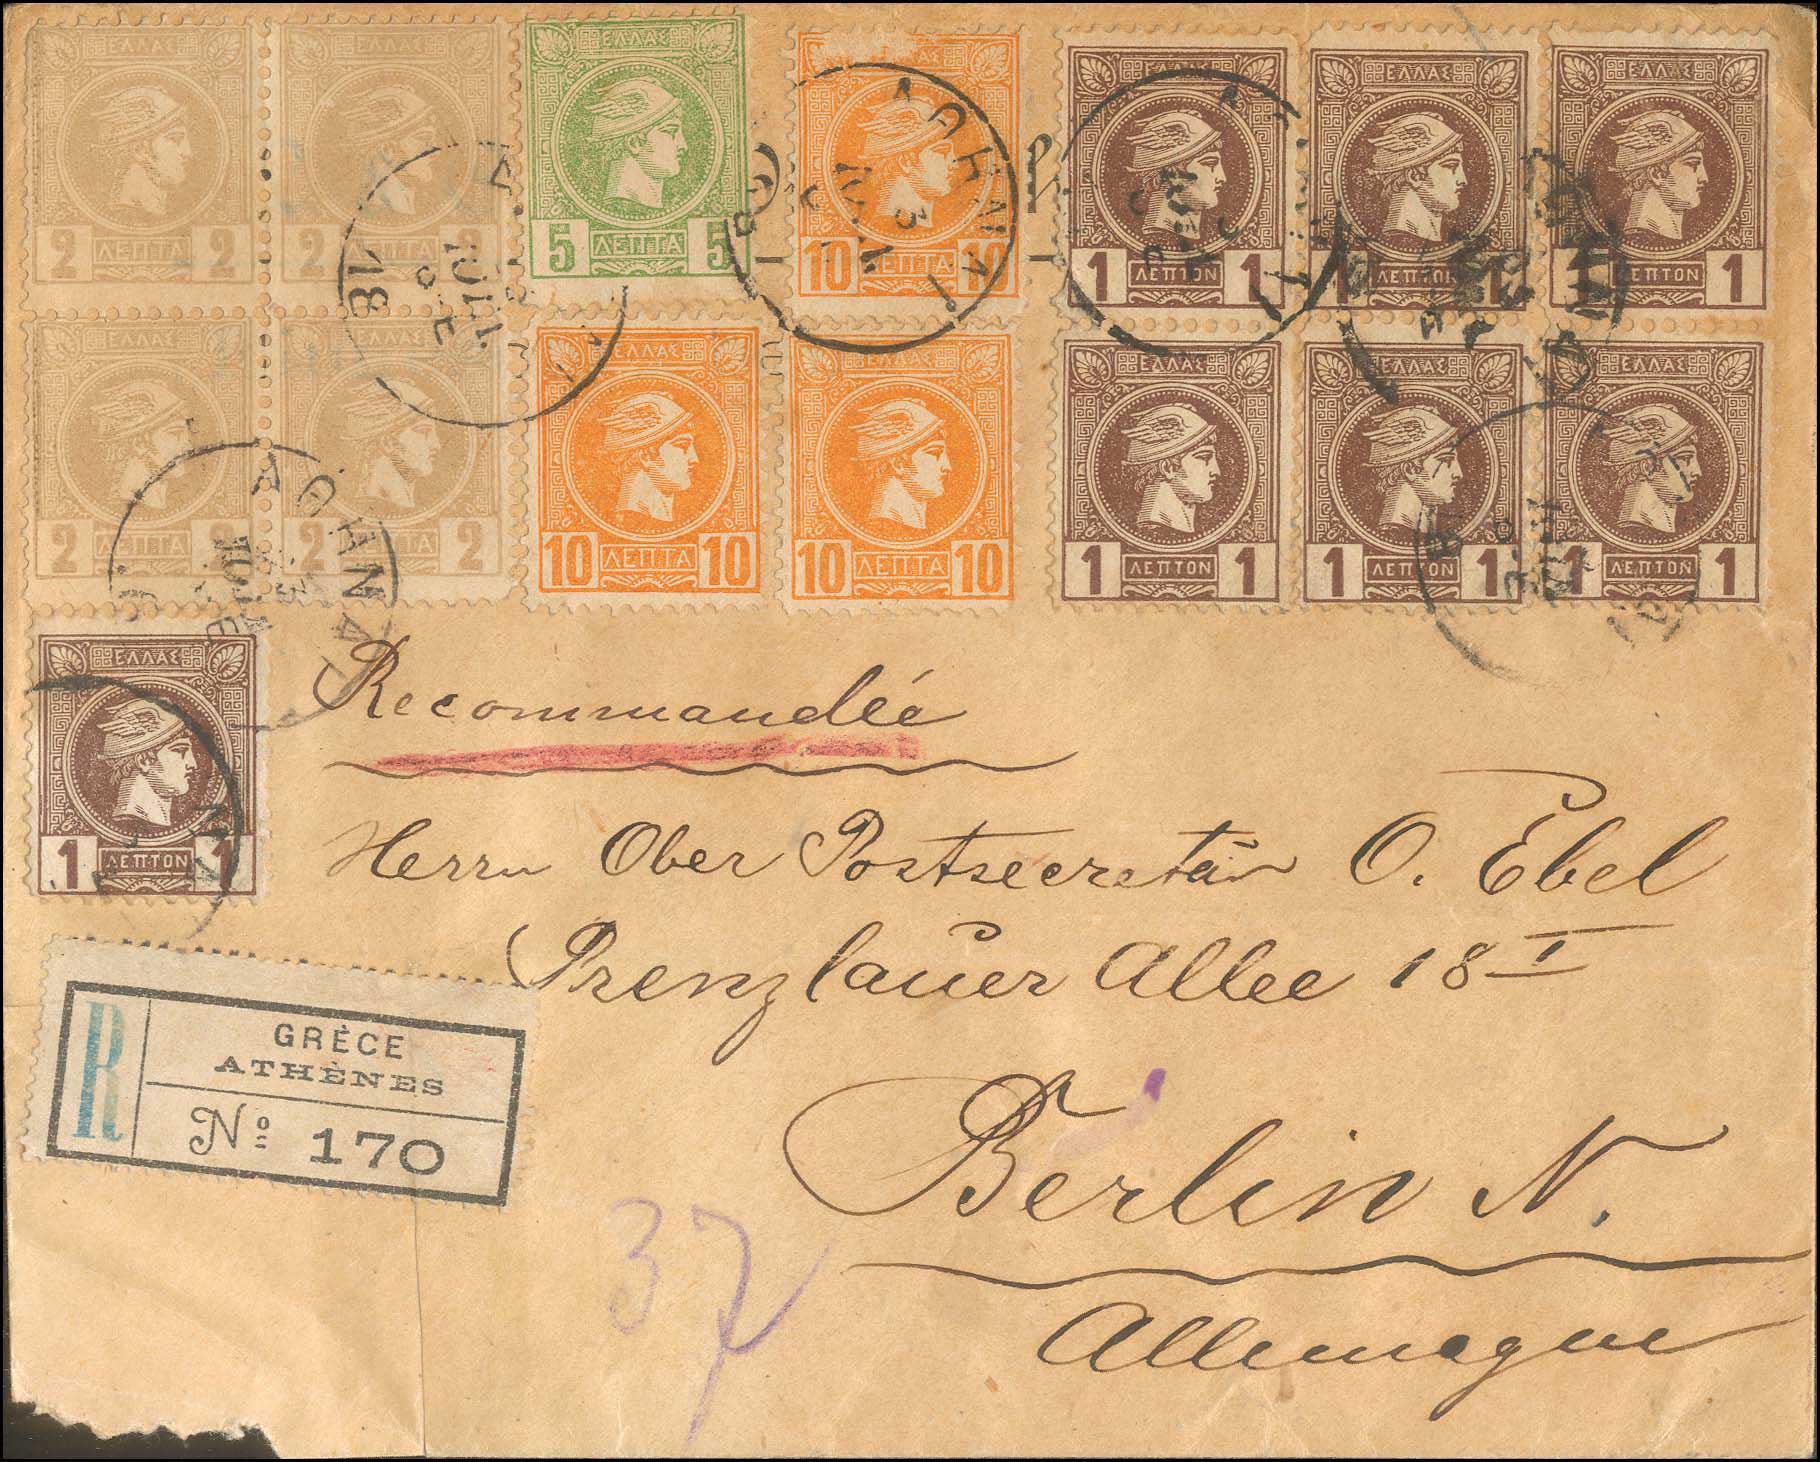 ΕΛΛΑΣ ΕΛΛΑΣ ΕΛΛΑΣ ΕΛΛΑΣ ΕΛΛΑΣ ΕΛΛΑΣ ΕΛΛΑΣ
2 ΛΕΠΤΑ 2 2 ΛΕΠΤΑ 2 5 ΛΕΠΤΑ 5 10 ΛΕΠΤΑ 10 1 ΛΕΠΤΟΝ 1 1 ΛΕΠΤΟΝ 1 1 ΛΕΠΤΟΝ 1
ΑΘΗΝΑΙ
81
ΙΟΥΛ
ΕΛΛΑΣ ΕΛΛΑΣ ΕΛΛΑΣ ΕΛΛΑΣ ΕΛΛΑΣ ΕΛΛΑΣ ΕΛΛΑΣ
2 ΛΕΠΤΑ 2 2 ΛΕΠΤΑ 2 10 ΛΕΠΤΑ 10 10 ΛΕΠΤΑ 10 1 ΛΕΠΤΟΝ 1 1 ΛΕΠΤΟΝ 1 1 ΛΕΠΤΟΝ 1
ΑΘΗΝΑΙ
ΕΛΛΑΣ
1 ΛΕΠΤΟΝ 1
Recommandée
Herrn Ober Postsecretär O. Ebel
Prenzlauer Allee 18 I
Berlin N.
Allemagne
R
GRÈCE
ATHÈNES
Nº 170
37